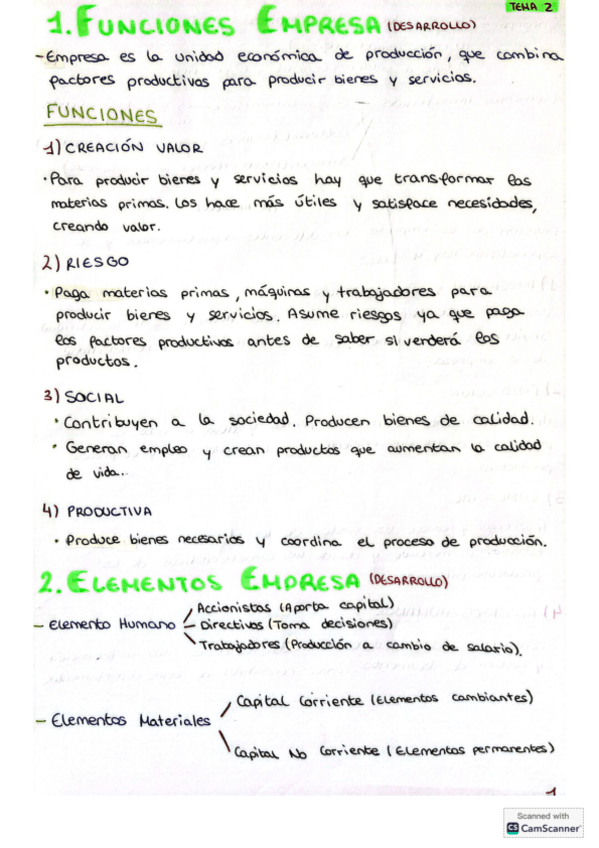 TEMA 2
1. FUNCIONES EMPRESA (DESARROLLO)
- Empresa es la unidad económica de producción, que combina
factores productivos para producir bienes y servicios.
FUNCIONES
1) CREACIÓN VALOR
· Para producir bienes y servicios hay que transformar las
materias primas. Los hace más útiles y satisface necesidades,
creando valor.
2) RIESGO
· Paga materias primas, máquinas y trabajadores para
producir bienes y servicios. Asume riesgos ya que paga
los factores productivos antes de saber si verderá los
productos.
3) SOCIAL
· Contribuyen a la sociedad. Producen bienes de calidad.
· Generan empleo y crean productos que aumentan la calidad
de vida...
4) PRODUCTIVA
· Produce bienes necesarios y coordina el proceso de producción.
2. ELEMENTOS EMPRESA (DESARROLLO)
Accionistas (Aporta capital)
- Elemento Humano - Directivos (Toma decisiones)
Trabajadores (Producción a cambio de salario).
Capital Corriente (Elementos cambiantes)
- Elementos Materiales
Capital No Corriente (Elementos permanentes)
1
Scanned with
CS CamScanner